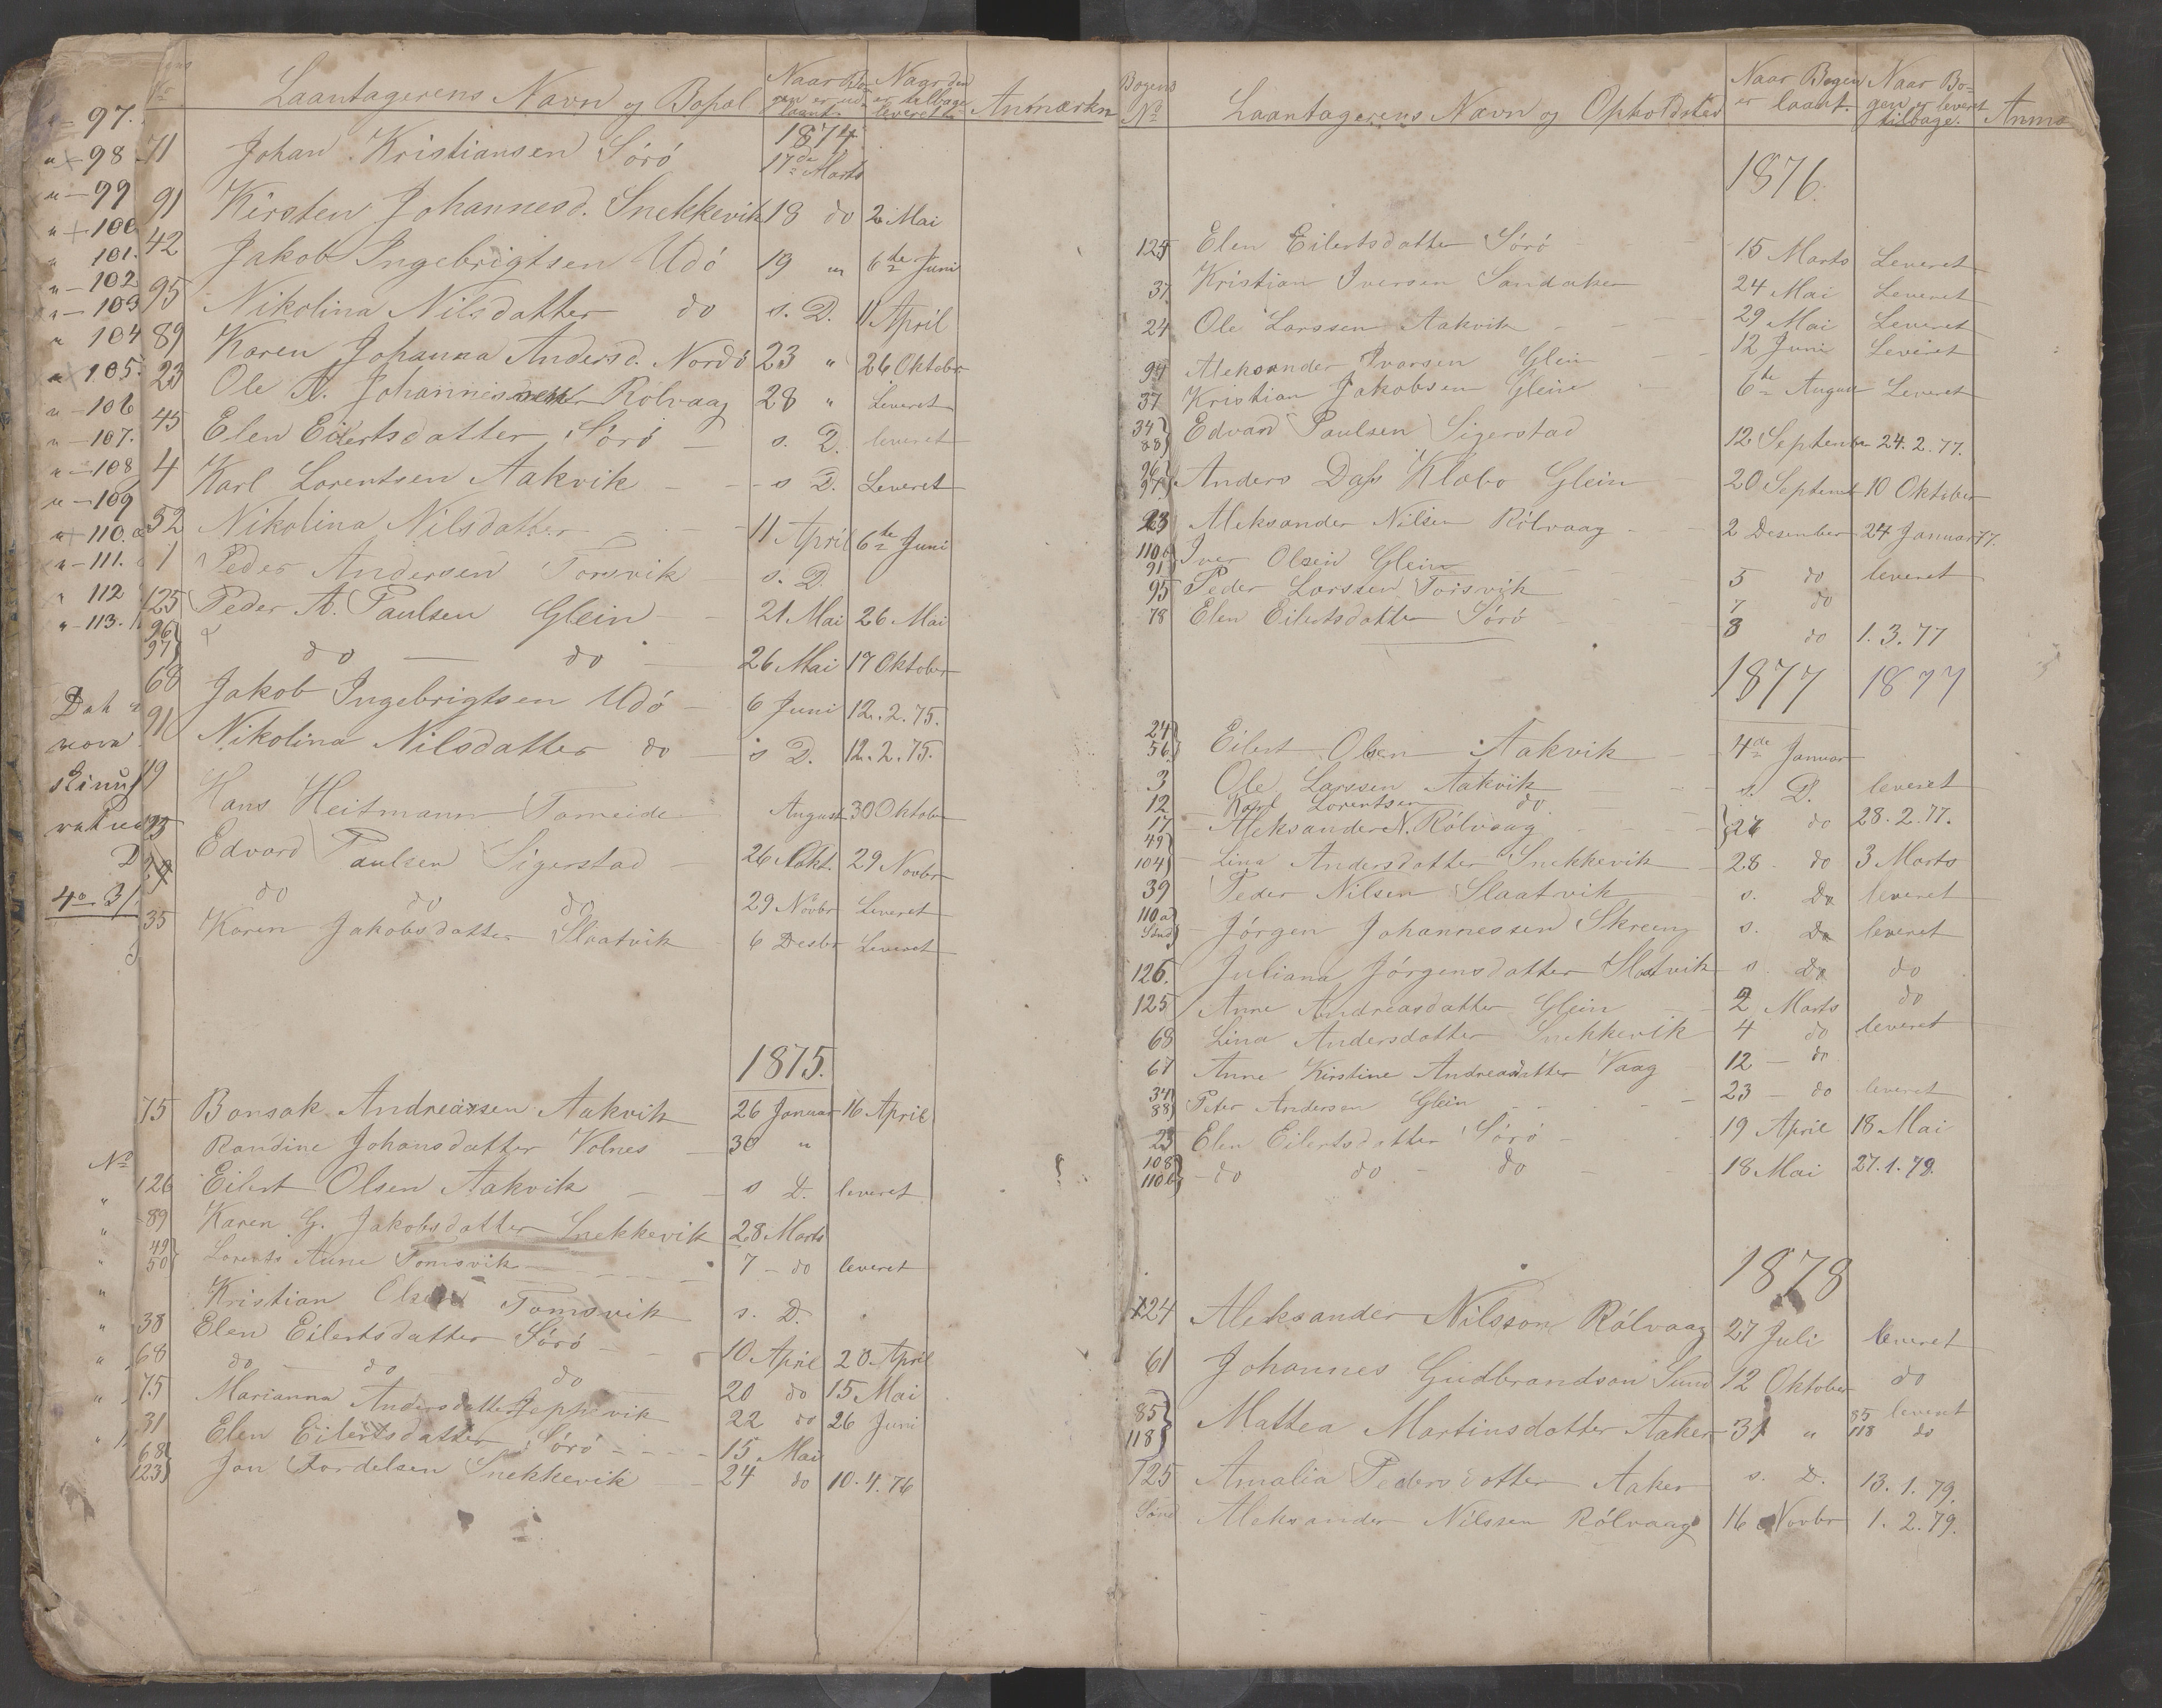 Laantagerens Navn og Bopæl Naar Bogen er udlaant Naar den er tilbageleveret Anmærkn
1874
71 Johan Kristiansen Sörö 17de Marts
91 Kirsten Johannesd. Snekkevik 18 do 2 Mai
42 Jakob Ingebrigtsen Udö 19 " 6te Juni
95 Nikolina Nilsdatter do s. D. 11 April
89 Karen Johanna Andersd. Nordö 23 " 26 Oktober
23 Ole A. Johannes Rölvaag 28 " Leveret
45 Elen Eilertsdatter Sörö s. D. leveret
4 Karl Lorentsen Aakvik s. D. Leveret
52 Nikolina Nilsdatter 11 April 6te Juni
1 Peder Andersen Torsvik s. D.
125 Peder A. Paulsen Glein 21 Mai 26 Mai
96 97 do do 26 Mai 17 Oktober
68 Jakob Ingebrigtsen Udö 6 Juni 12.2.75.
91 Nikolina Nilsdatter do s D. 12.2.75.
Hans Heitmann Tomeide August 30 Oktober
Edvard Paulsen Sigerstad 26 Okt. 29 Novbr
do do do 29 Novbr Leveret
35 Karen Jakobsdatter Slaatvik 6 Desbr Leveret
1875.
75 Bonsak Andreassen Aakvik 26 Januar 16 April
Randine Johansdatter Volnes 30 "
126 Eilert Olsen Aakvik s D. leveret
89 Karen G. Jakobsdatter Snekkevik 28 Marts
49 50 Lorents Aune Tomsvik 7 do leveret
Kristian Olsen Tomsvik s. D.
38 Elen Eilertsdatter Sörö 10 April 20 April
68 do do do 20 do 15 Mai
75 Marianna Andersdatter Jeppevik 22 do 26 Juni
31 Elen Eilertsdatter Sörö 15 Mai
68 123 Jon Fordelsen Snekkevik 24 do 10.4.76
97.
98
99
100
101.
102
103
104
105.
106
107.
108
109
110. a
111.
112
113.
No
Bogens No Laantagerens Navn og Opholdsted Naar Bogen er laant. Naar Bogen er leveret tilbage. Anmæ
1876.
125 Elen Eilertsdatter Sörö 15 Marts Leveret
37 Kristian Iversen Sandaker 24 Mai Leveret
24 Ole Larssen Aakvik 29 Mai Leveret
99 Aleksander Ivarsen Glein 12 Juni Leveret
37 Kristian Jakobsen Glein 6te August Leveret
34 88 Edvard Paulsen Sigerstad 12 September 24.2.77.
96 97 Anders Dass Klæbo Glein 20 Septemb 10 Oktober
23 Aleksander Nilsen Rölvaag 2 Desember 24 Januar 77.
110b 91 Iver Olsen Glein 5 do leveret
95 Peder Larssen Torsvik 7 do
78 Elen Eilertsdatter Sörö 8 do 1.3.77
1877 1877
24 56 Eilert Olsen Aakvik 4de Januar
3 Ole Larssen Aakvik s. D. leveret
12 Karl Lorentsen do
17 Aleksander N. Rölvaag 27 do 28.2.77.
49 104 Lina Andersdatter Snekkevik 28 do 3 Marts
39 Peder Nilsen Slaatvik s. Do leveret
110a Sönd Jörgen Johannessen Skreeng s. Do leveret
126. Juliana Jörgensdatter Slotvik s. Do do
125 Anne Andreasdatter Glein 2 Marts do
68 Lina Andersdatter Snekkevik 4 do leveret
67 Anne Kirstine Andreasdatter Vaag 12 do
34 88 Peter Andersen Glein 23 do leveret
23 Elen Eilertsdatter Sörö 19 April 18 Mai
108 110b do do do 18 Mai 27.1.78.
1878
124 Aleksander Nilsson Rölvaag 27 Juli leveret
61 Johannes Gudbrandson Sund 12 Oktober do
85 118 Mattea Martinsdatter Aaker 31 " 85 leveret 118 do
125 Amalia Pedersdotter Aaker s. D. 13.1.79.
Sönd Aleksander Nilssen Rölvaag 16 Novbr 1.2.79.